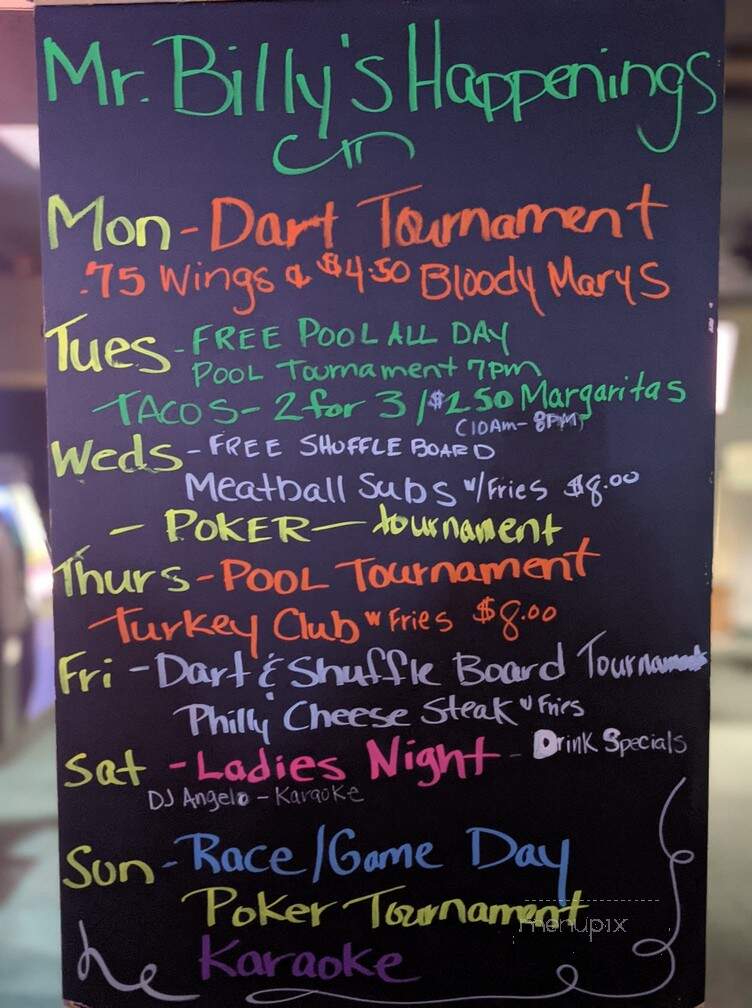 Mr. Billy's Happenings
Mon - Dart Tournament
.75 Wings & $4.50 Bloody Marys
Tues - FREE POOL ALL DAY
POOL Tournament 7pm
TACOS - 2 for 3 / $2.50 Margaritas
(10Am - 8PM)
Weds - FREE SHUFFLE BOARD
Meatball Subs w/Fries $8.00
- POKER - tournament
Thurs - POOL Tournament
Turkey Club w Fries $8.00
Fri - Dart & Shuffle Board Tournament
Philly Cheese Steak w Fries
Sat - Ladies Night - Drink Specials
DJ Angelo - Karaoke
Sun - Race / Game Day
Poker Tournament
menupix
Karaoke